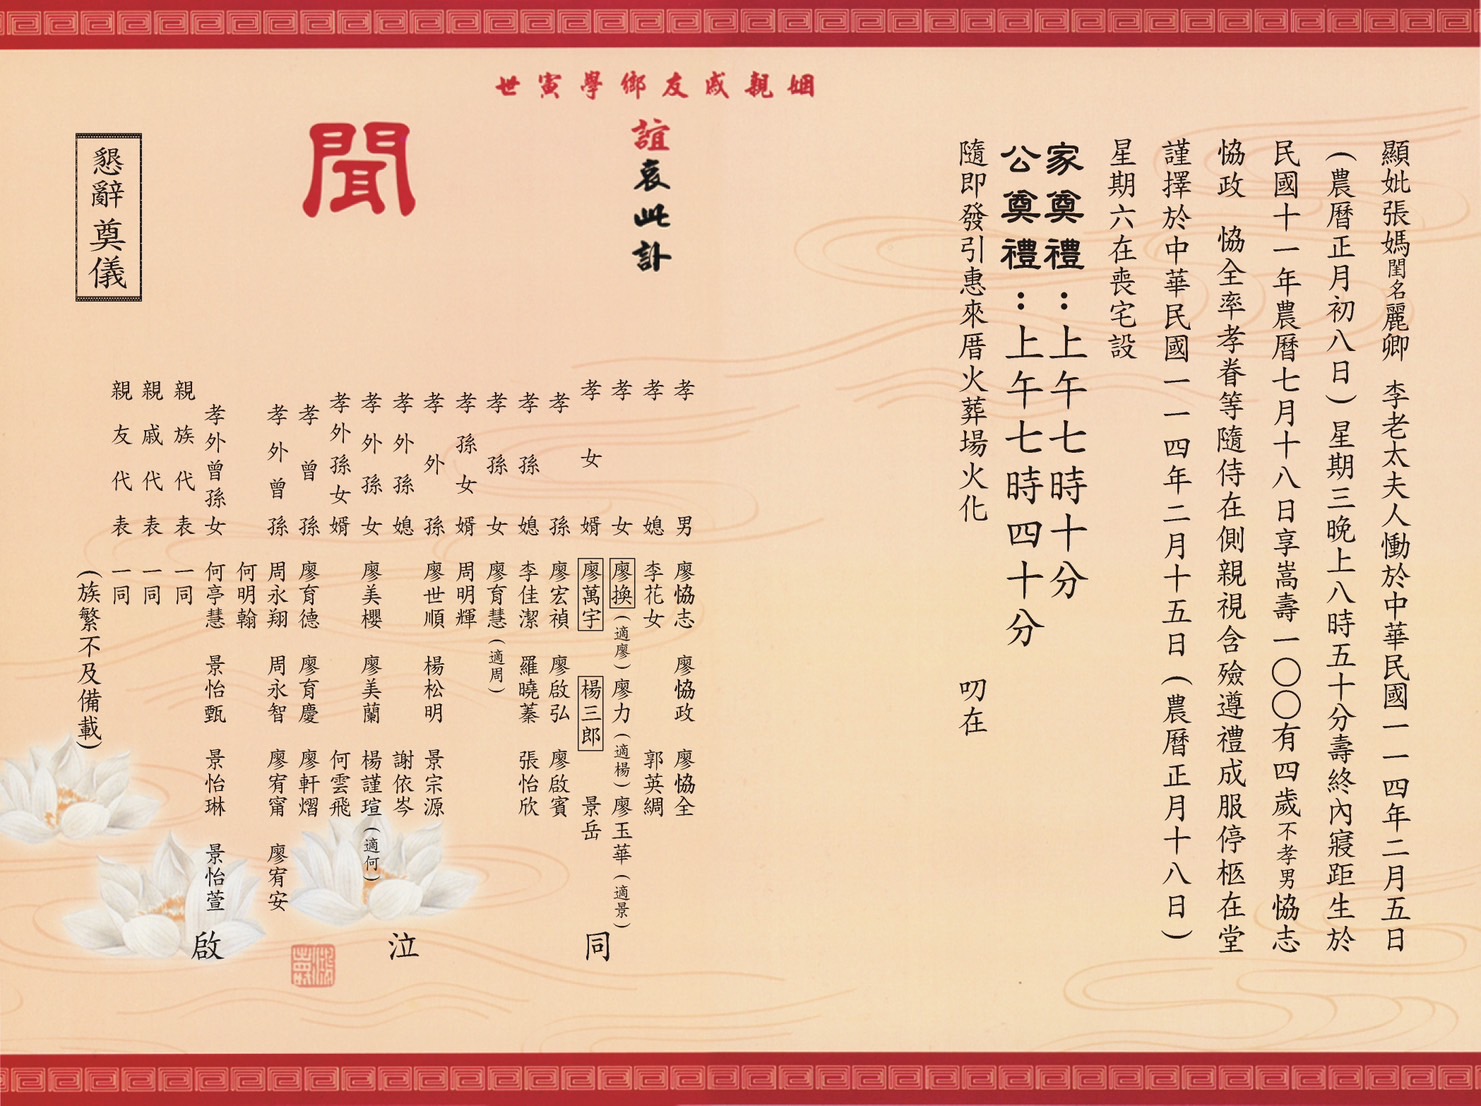 顯妣張媽閨名麗卿 李老太夫人慟於中華民國一一四年二月五日
(農曆正月初八日)星期三晚上八時五十分壽終內寢距生於
民國十一年農曆七月十八日享嵩壽一〇〇有四歲不孝男協志
協政 協全率孝眷等隨侍在側親視含殮遵禮成服停柩在堂
謹擇於中華民國一一四年二月十五日(農曆正月十八日)
星期六在喪宅設
家奠禮:上午七時十分
公奠禮:上午七時四十分
隨即發引惠來厝火葬場火化 叨在
姻親戚友鄉學寅世
誼哀此訃
聞
孝男 廖協志 廖協政 廖協全
孝媳 李花女 郭英綢
孝女 廖換(適廖)廖力(適楊)廖玉華(適景)
孝女婿 廖萬宇 楊三郎 景岳
孝孫 廖宏禎 廖啟弘 廖啟賓
孝孫媳 李佳潔 羅曉蓁 張怡欣
孝孫女 廖育慧(適周)
孝孫女婿 周明輝
孝外孫 廖世順 楊松明 景宗源
孝外孫媳 謝依岑
孝外孫女 廖美櫻 廖美蘭 楊謹瑄(適何)
孝外孫女婿 何雲飛
孝曾孫 廖育德 廖育慶 廖軒熠
孝外曾孫 周永翔 周永智 廖宥甯 廖宥安
何明翰
孝外曾孫女 何亭慧 景怡甄 景怡琳 景怡萱
親族代表 一同
親戚代表 一同
親友代表 一同
(族繁不及備載)
同泣啟
懇辭奠儀